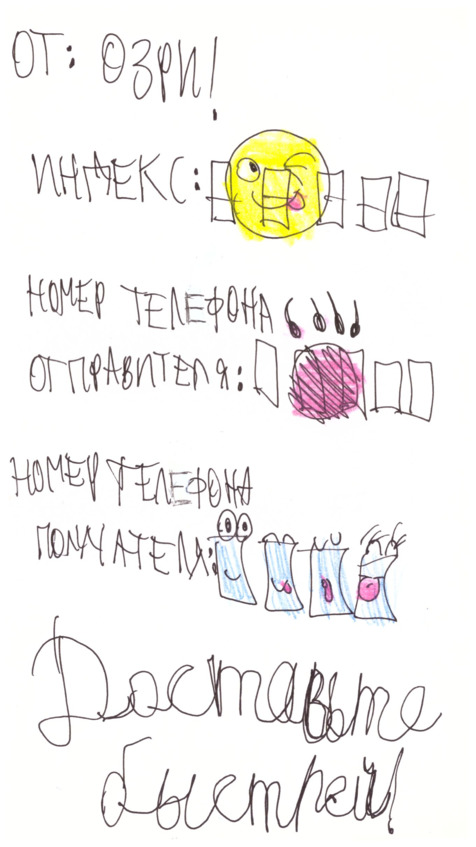 ОТ: ОЗРИ!
ИНДЕКС:
НОМЕР ТЕЛЕФОНА
ОТПРАВИТЕЛЯ:
НОМЕР ТЕЛЕФОНА
ПОЛУЧАТЕЛЯ:
Доставьте
быстрей!